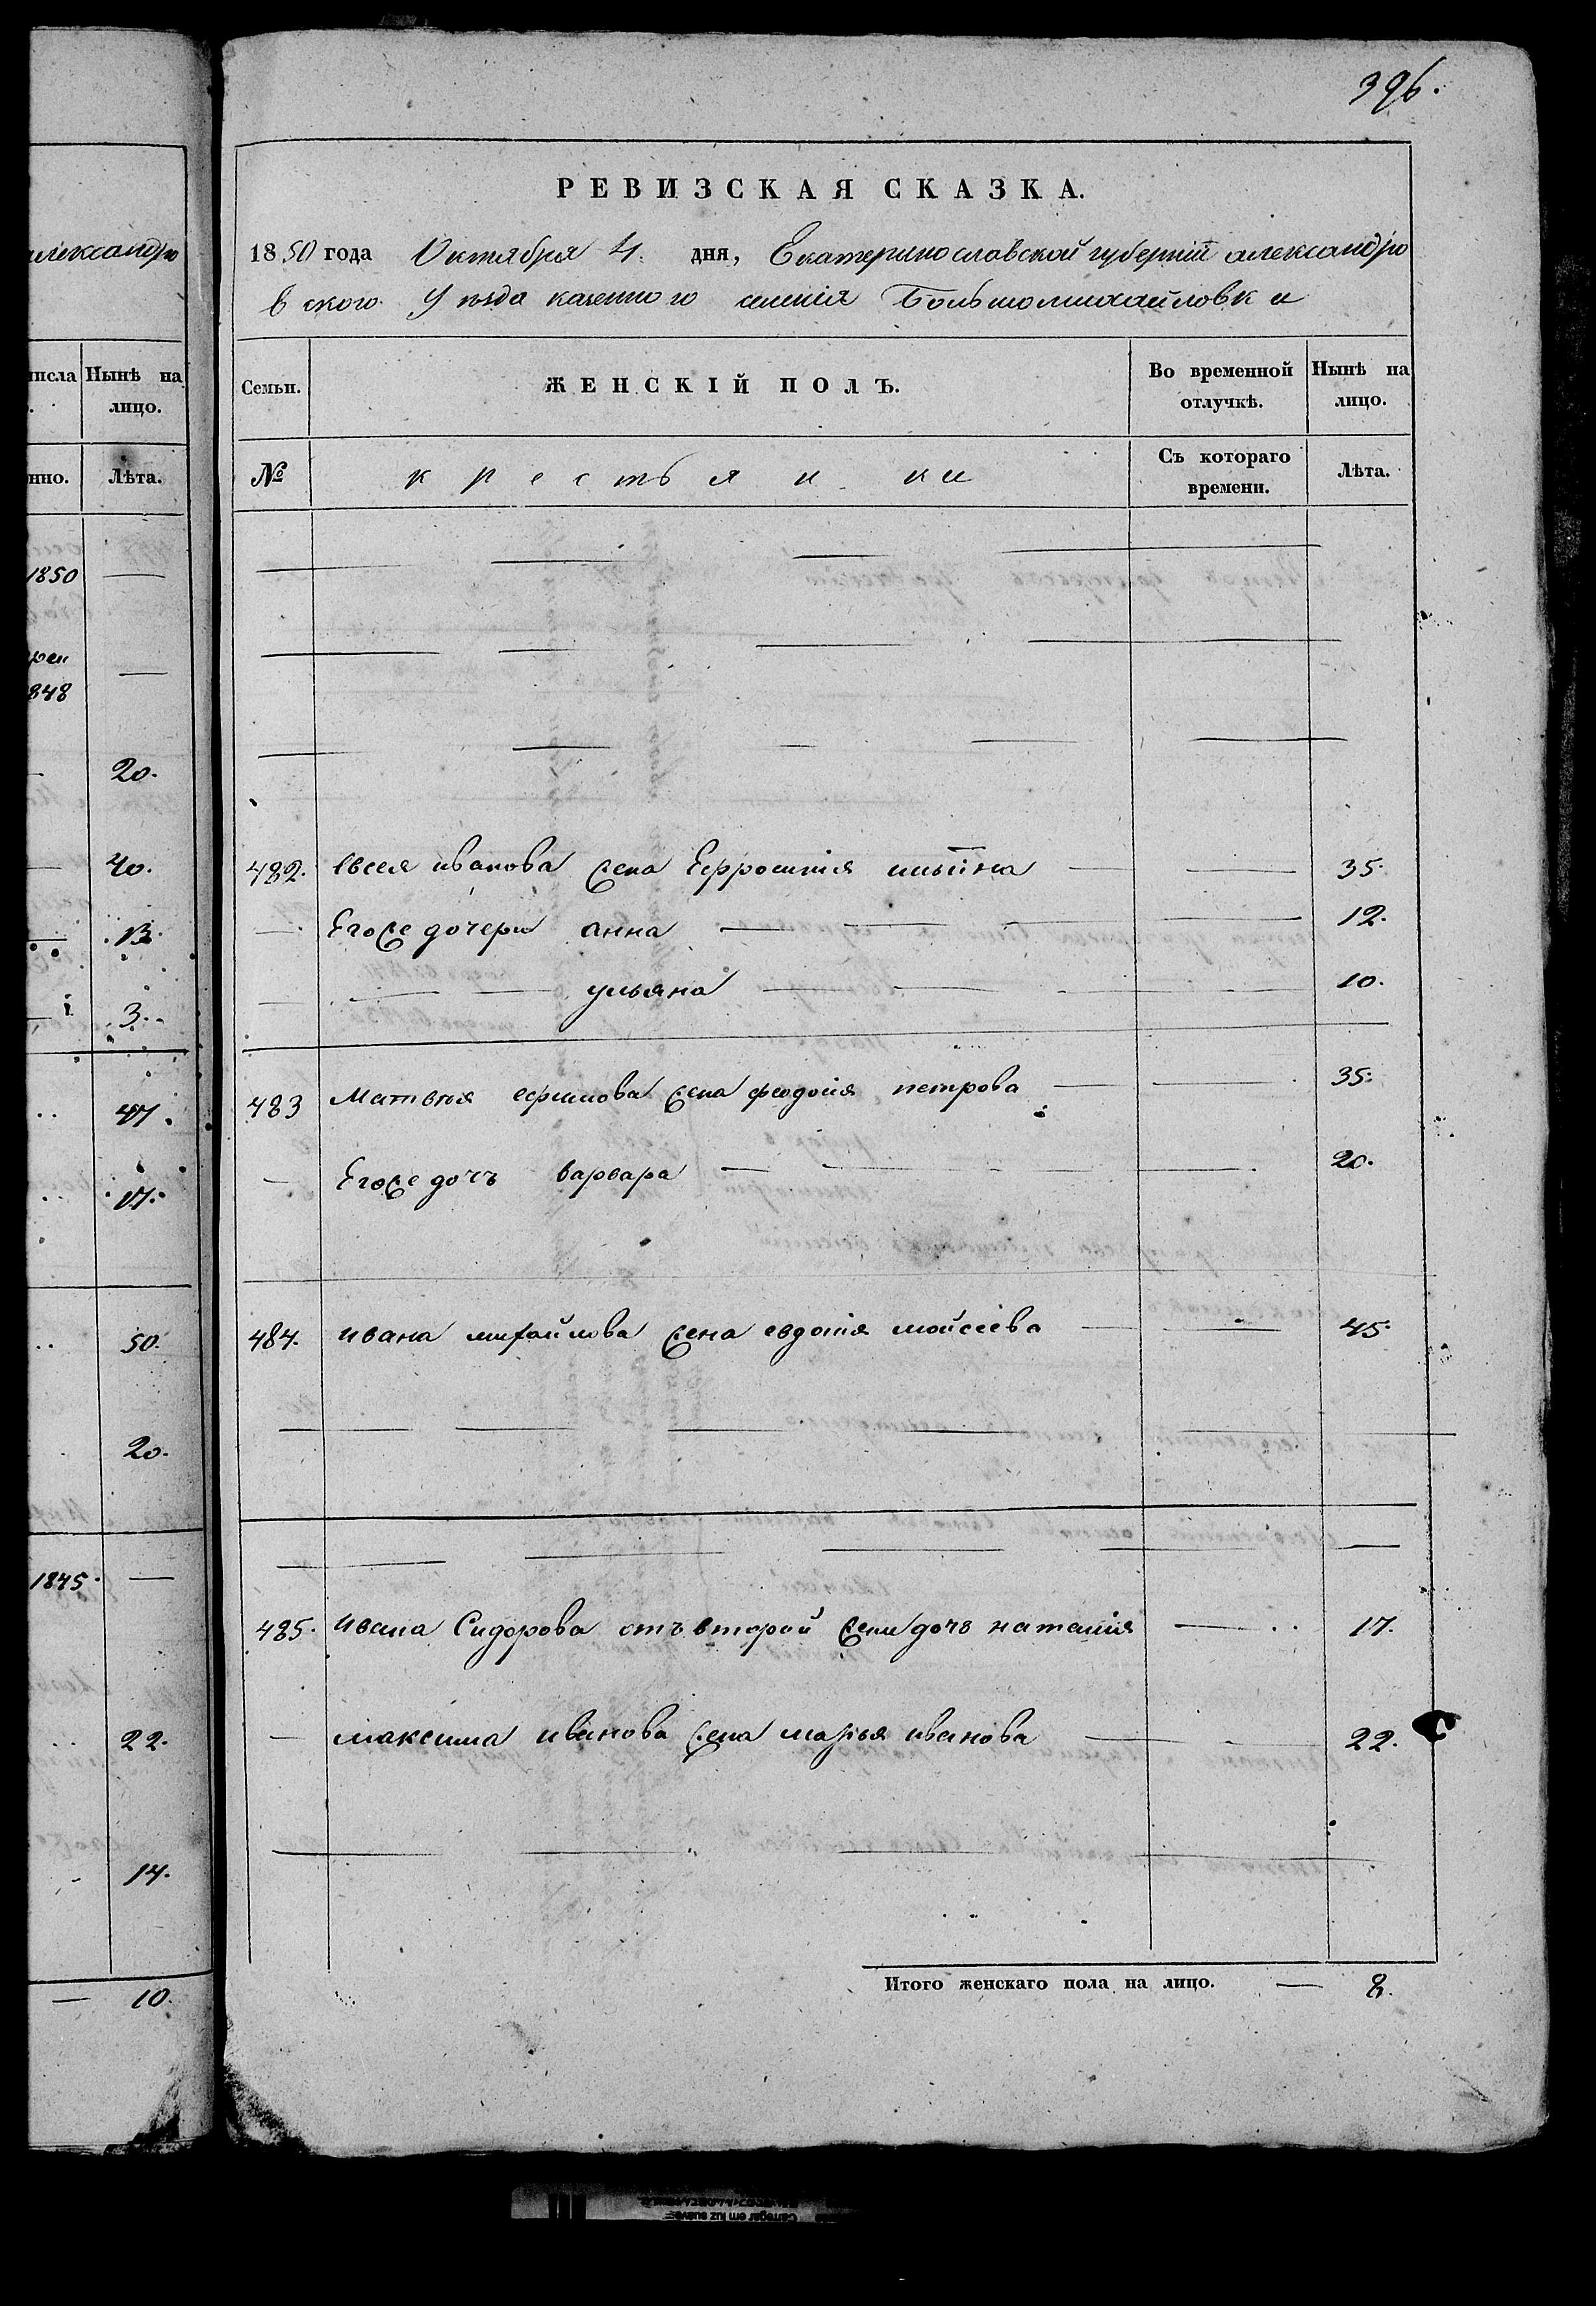 396.
РЕВИЗСКАЯ СКАЗКА.
1850 года Октября 4. дня, Екатеринославской губерніи александро
вского Уѣзда казенного селенія Большомихайловки
Семьи. ЖЕНСКІЙ ПОЛЪ. Во временной отлучкѣ. Нынѣ на лицо.
№ крестьянки Съ котораго времени. Лѣта.
482. Евсея иванова жена Ефросинія 35.
Егоже дочери анна 12.
ульяна 10.
483 Матвѣя ефимова жена феодосія петрова 35.
Егоже дочь варвара 20.
484. ивана михайлова жена евдокія мойсеева 45.
485. ивана Сидорова отъ второй жены дочь наталія 17.
максима иванова жена марья иванова 22.
Итого женскаго пола на лицо. — 8.
александро
числа Нынѣ на лицо.
нно. Лѣта.
1850
848
20.
40.
13.
3.
47.
17.
50.
20.
1845.
22.
14.
10.